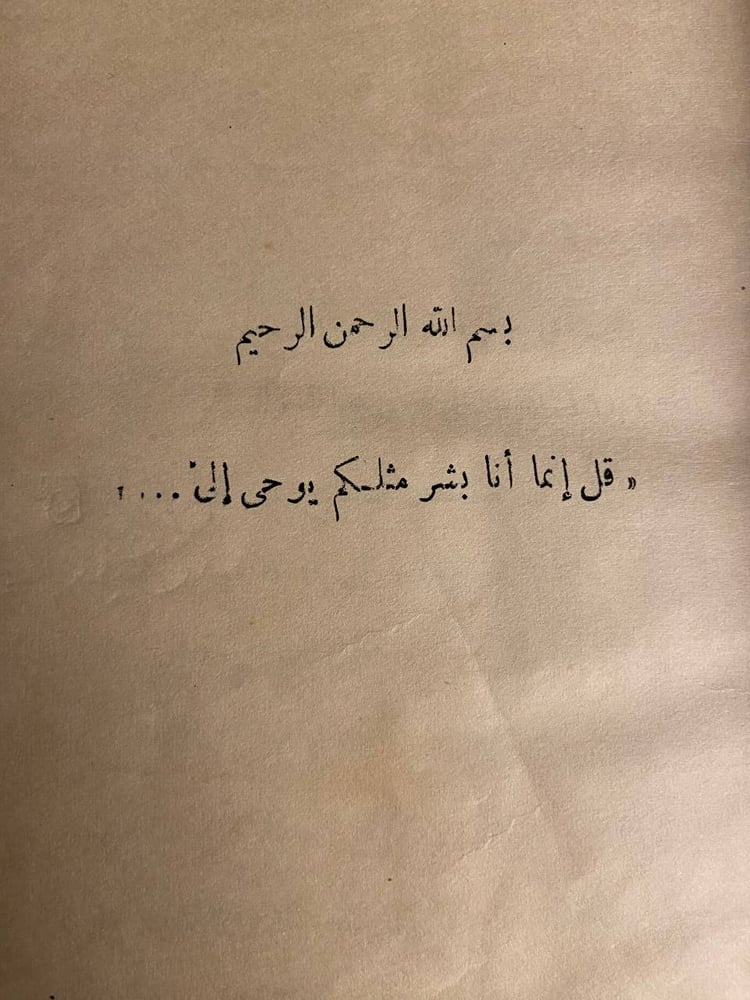 بسم الله الرحمن الرحيم
« قل إنما أنا بشر مثلكم يوحى إلىّ ... »